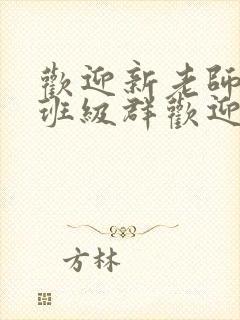 歡迎新老師
班級群歡迎
方林